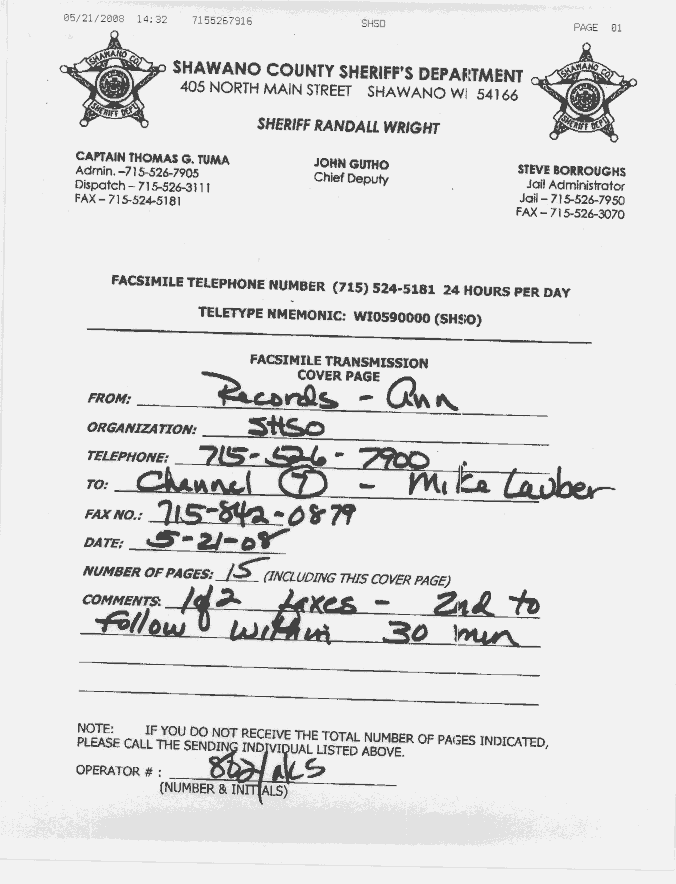 05/21/2008 14:32 7155267916 SHSO PAGE 01
SHAWANO COUNTY SHERIFF'S DEPARTMENT
405 NORTH MAIN STREET SHAWANO WI 54166
SHERIFF RANDALL WRIGHT
SHAWANO CO.
SHERIFF DEPT.
SHAWANO CO.
SHERIFF DEPT.
CAPTAIN THOMAS G. TUMA
Admin. –715-526-7905
Dispatch – 715-526-3111
FAX – 715-524-5181
JOHN GUTHO
Chief Deputy
STEVE BORROUGHS
Jail Administrator
Jail – 715-526-7950
FAX – 715-526-3070
FACSIMILE TELEPHONE NUMBER (715) 524-5181 24 HOURS PER DAY
TELETYPE NMEMONIC: WI0590000 (SHSO)
FACSIMILE TRANSMISSION
COVER PAGE
FROM: Records - Ann
ORGANIZATION: SHSO
TELEPHONE: 715-526-7900
TO: Channel - Mike Lauber
FAX NO.: 715-842-0879
DATE: 5-21-08
NUMBER OF PAGES: 15 (INCLUDING THIS COVER PAGE)
COMMENTS: 1 of 2 faxes - 2nd to
follow within 30 min
NOTE: IF YOU DO NOT RECEIVE THE TOTAL NUMBER OF PAGES INDICATED,
PLEASE CALL THE SENDING INDIVIDUAL LISTED ABOVE.
OPERATOR # : /aks
(NUMBER & INITIALS)